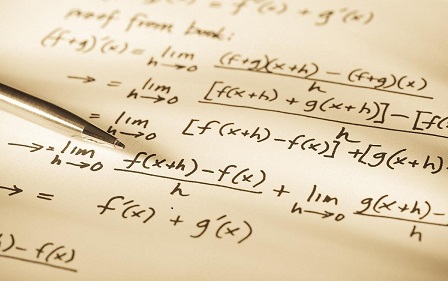 = f'(x) + g'(x)
proof from book:
(f+g)'(x) = lim h→0 (f+g)(x+h) − (f+g)(x) / h
→ = lim h→0 [f(x+h) + g(x+h)] − [f(
= lim h→0 [f(x+h) − f(x)] + [g(x+h) − / h
→ = lim h→0 f(x+h) − f(x) / h + lim h→0 g(x+h) − / h
→ = f'(x) + g'(x)
) − f(x)